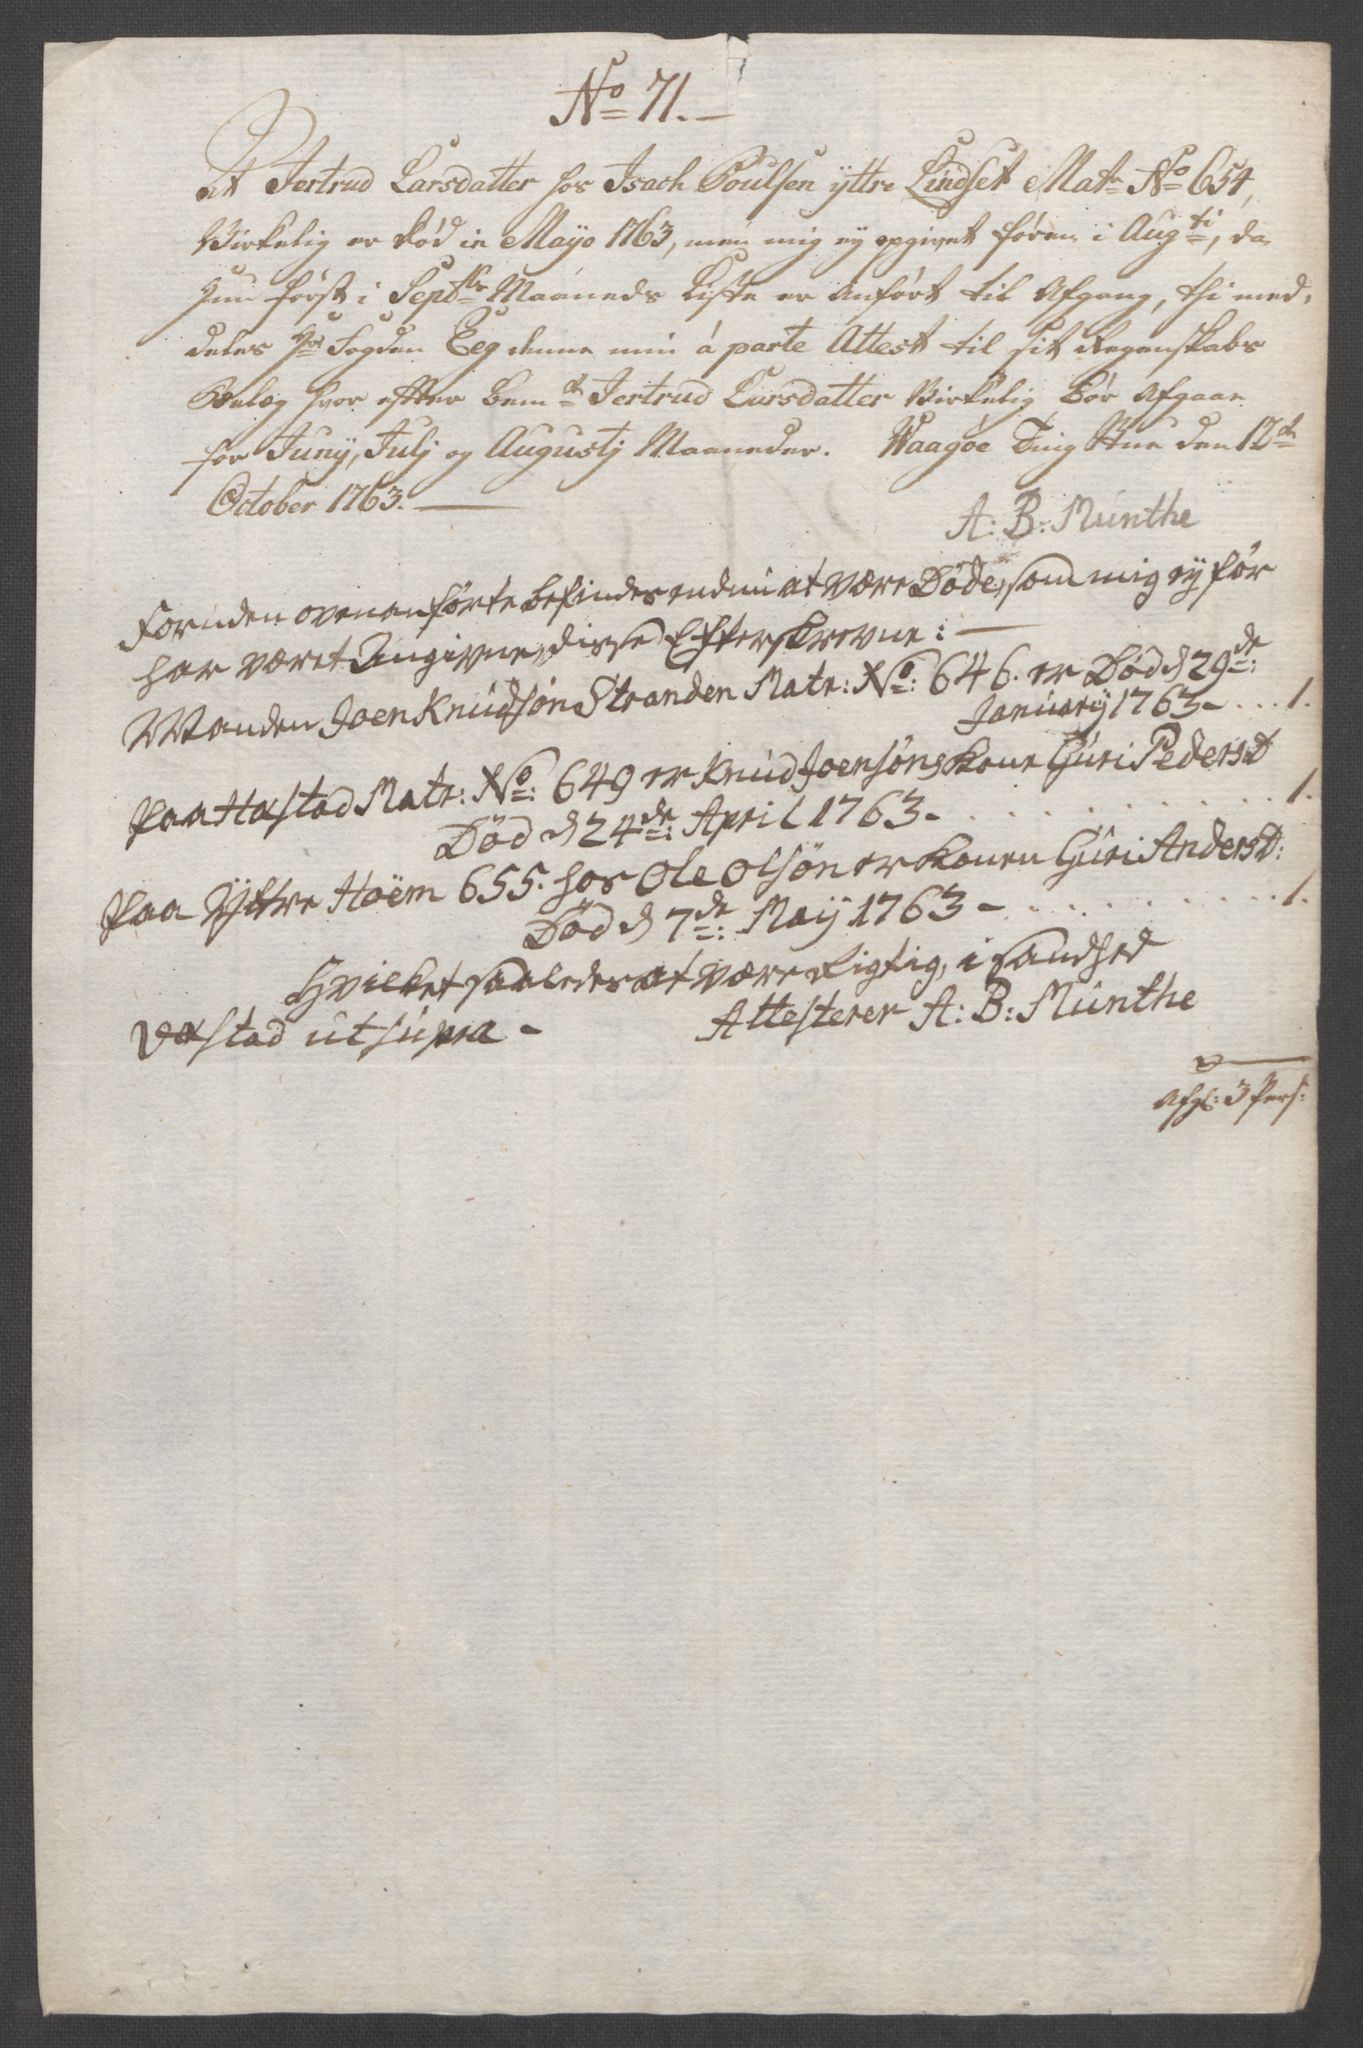 No 71. —
At Jertrud Larsdatter hos Isach Poulsen yttre Lindset Matr No 654,
Virkelig er død in Mayo 1763, men mig ey opgivet føren i Augti, da
hun først i Septbr Maaneds Liste er anført til Afgang, thi med-
deles Hr Fogden Eeg denne min á parte Attest til sit Regenskabs
Belæg hvor efter bemte Jertrud Larsdatter Virkelig bør Afgaae
for Juny, Julj og Augustj Maaneder. Waagøe Ting Stue den 12te
October 1763. —
A: B: Münthe
Foruden ovenanførte befindes endnu at være Døde, som mig ey før
har været Angivne, disse Efterskrevne: —
Manden Joen Knudsøn Stranden Matr: No: 646. er Død d 29de:
January 1763 - . . . 1.
Paa Hastad Matr: No: 649 er Knud Joensøns Kone Guri Pedersd
Død d 24de: April 1763 - . . . . . . . . . . . 1.
Paa Yttre Hoëm 655. hos Ole Olsøn er Konen Guri Andersd:
Død d 7de: May 1763 - . . . . . . . . . . 1.
Hvilket saaledes at være Rigtig, i Sandhed
Attesterer A: B: Münthe
ut supra -
Afg: 3 Pers: